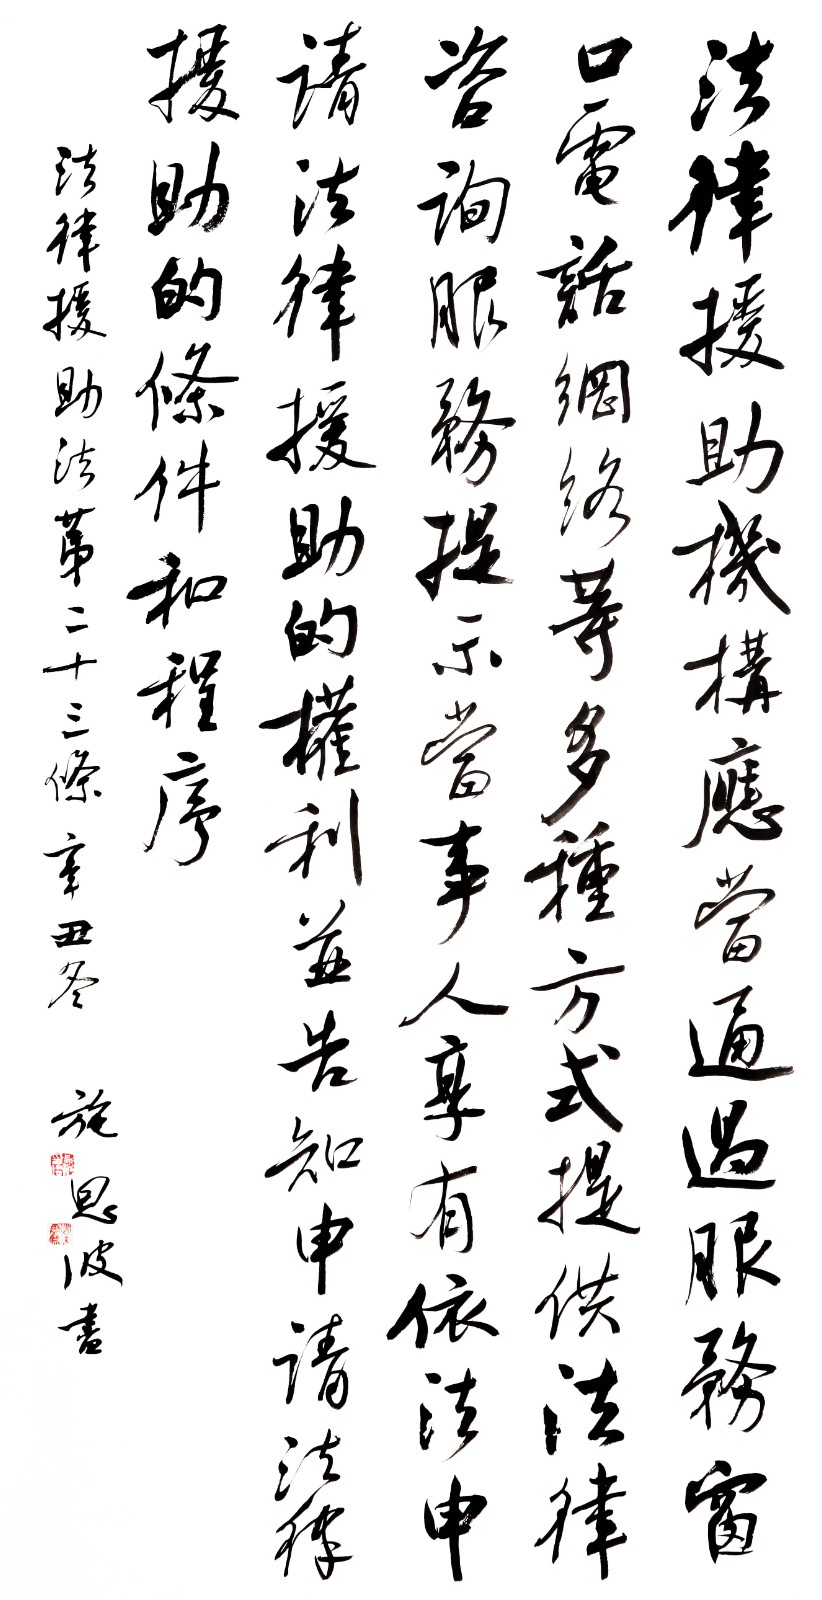 法律援助機構應當通過服務窗
口電話網絡等多種方式提供法律
咨詢服務提示當事人享有依法申
請法律援助的權利並告知申請法律
援助的條件和程序
法律援助法第二十三條 辛丑冬 施恩波書